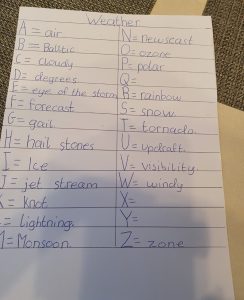 Weather
A = air
B = Balltic
C = cloudy
D = degrees
E = eye of the storm
F = forecast
G = gail
H = hail stones
I = Ice
J = jet stream
K = knot
L = lightning
M = Monsoon
N = newscast
O = ozone
P = polar
Q =
R = rainbow
S = snow
T = tornado
U = updraft
V = visibility
W = windy
X =
Y =
Z = zone